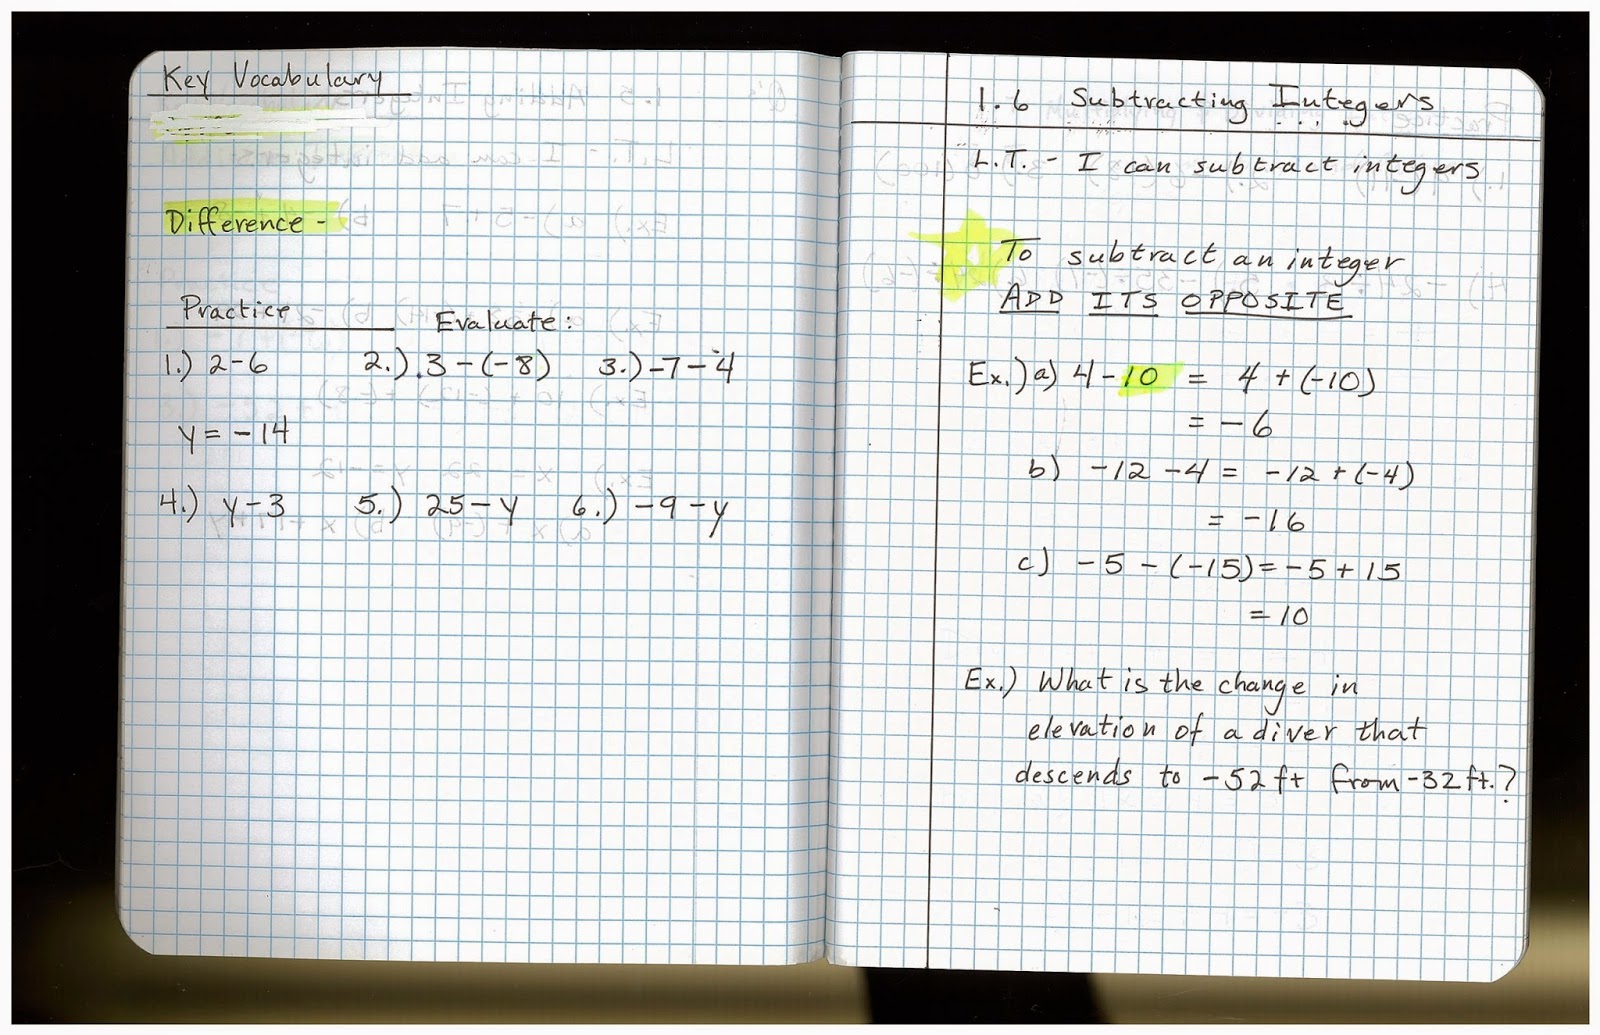 Key Vocabulary
Difference -
Practice
Evaluate:
1.) 2-6 2.) 3-(-8) 3.) -7-4
y = -14
4.) y-3 5.) 25-y 6.) -9-y
1.6 Subtracting Integers
L.T. - I can subtract integers
To subtract an integer
ADD ITS OPPOSITE
Ex.) a) 4-10 = 4+(-10)
= -6
b) -12-4 = -12+(-4)
= -16
c) -5-(-15) = -5+15
= 10
Ex.) What is the change in
elevation of a diver that
descends to -52ft from -32ft.?